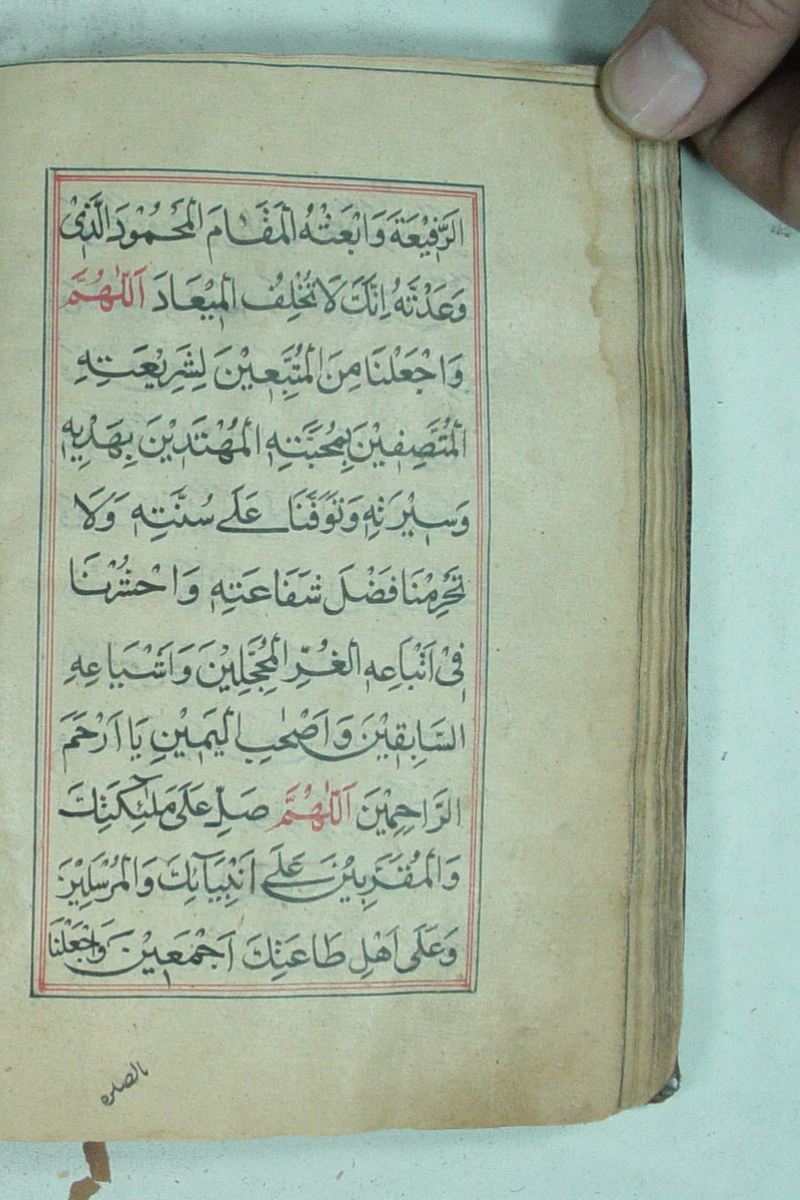 الرَّفِيْعَةَ وَابْعَثْهُ الْمَقَامَ الْمَحْمُوْدَ الَّذِىْ
وَعَدْتَّهُ اِنَّكَ لَا تُخْلِفُ الْمِيْعَادَ اَللّٰهُمَّ
وَاجْعَلْنَا مِنَ الْمُتَّبِعِيْنَ لِشَرِيْعَتِهِ
الْمُتَّصِفِيْنَ بِمَحَبَّتِهِ الْمُهْتَدِيْنَ بِهَدْيِهِ
وَسِيْرَتِهِ وَتَوَفَّنَا عَلَى سُنَّتِهِ وَلَا
تَحْرِمْنَا فَضْلَ شَفَاعَتِهِ وَاحْشُرْنَا
فِىْ اَتْبَاعِهِ الْغُرِّ الْمُحَجَّلِيْنَ وَاَشْيَاعِهِ
السَّابِقِيْنَ وَاَصْحٰبِ الْيَمِيْنِ يَا اَرْحَمَ
الرَّاحِمِيْنَ اَللّٰهُمَّ صَلِّ عَلَى مَلٰئِكَتِكَ
وَالْمُقَرَّبِيْنَ عَلَى اَنْبِيَآئِكَ وَالْمُرْسَلِيْنَ
وَعَلَى اَهْلِ طَاعَتِكَ اَجْمَعِيْنَ وَاجْعَلْنَا
بالصلوه